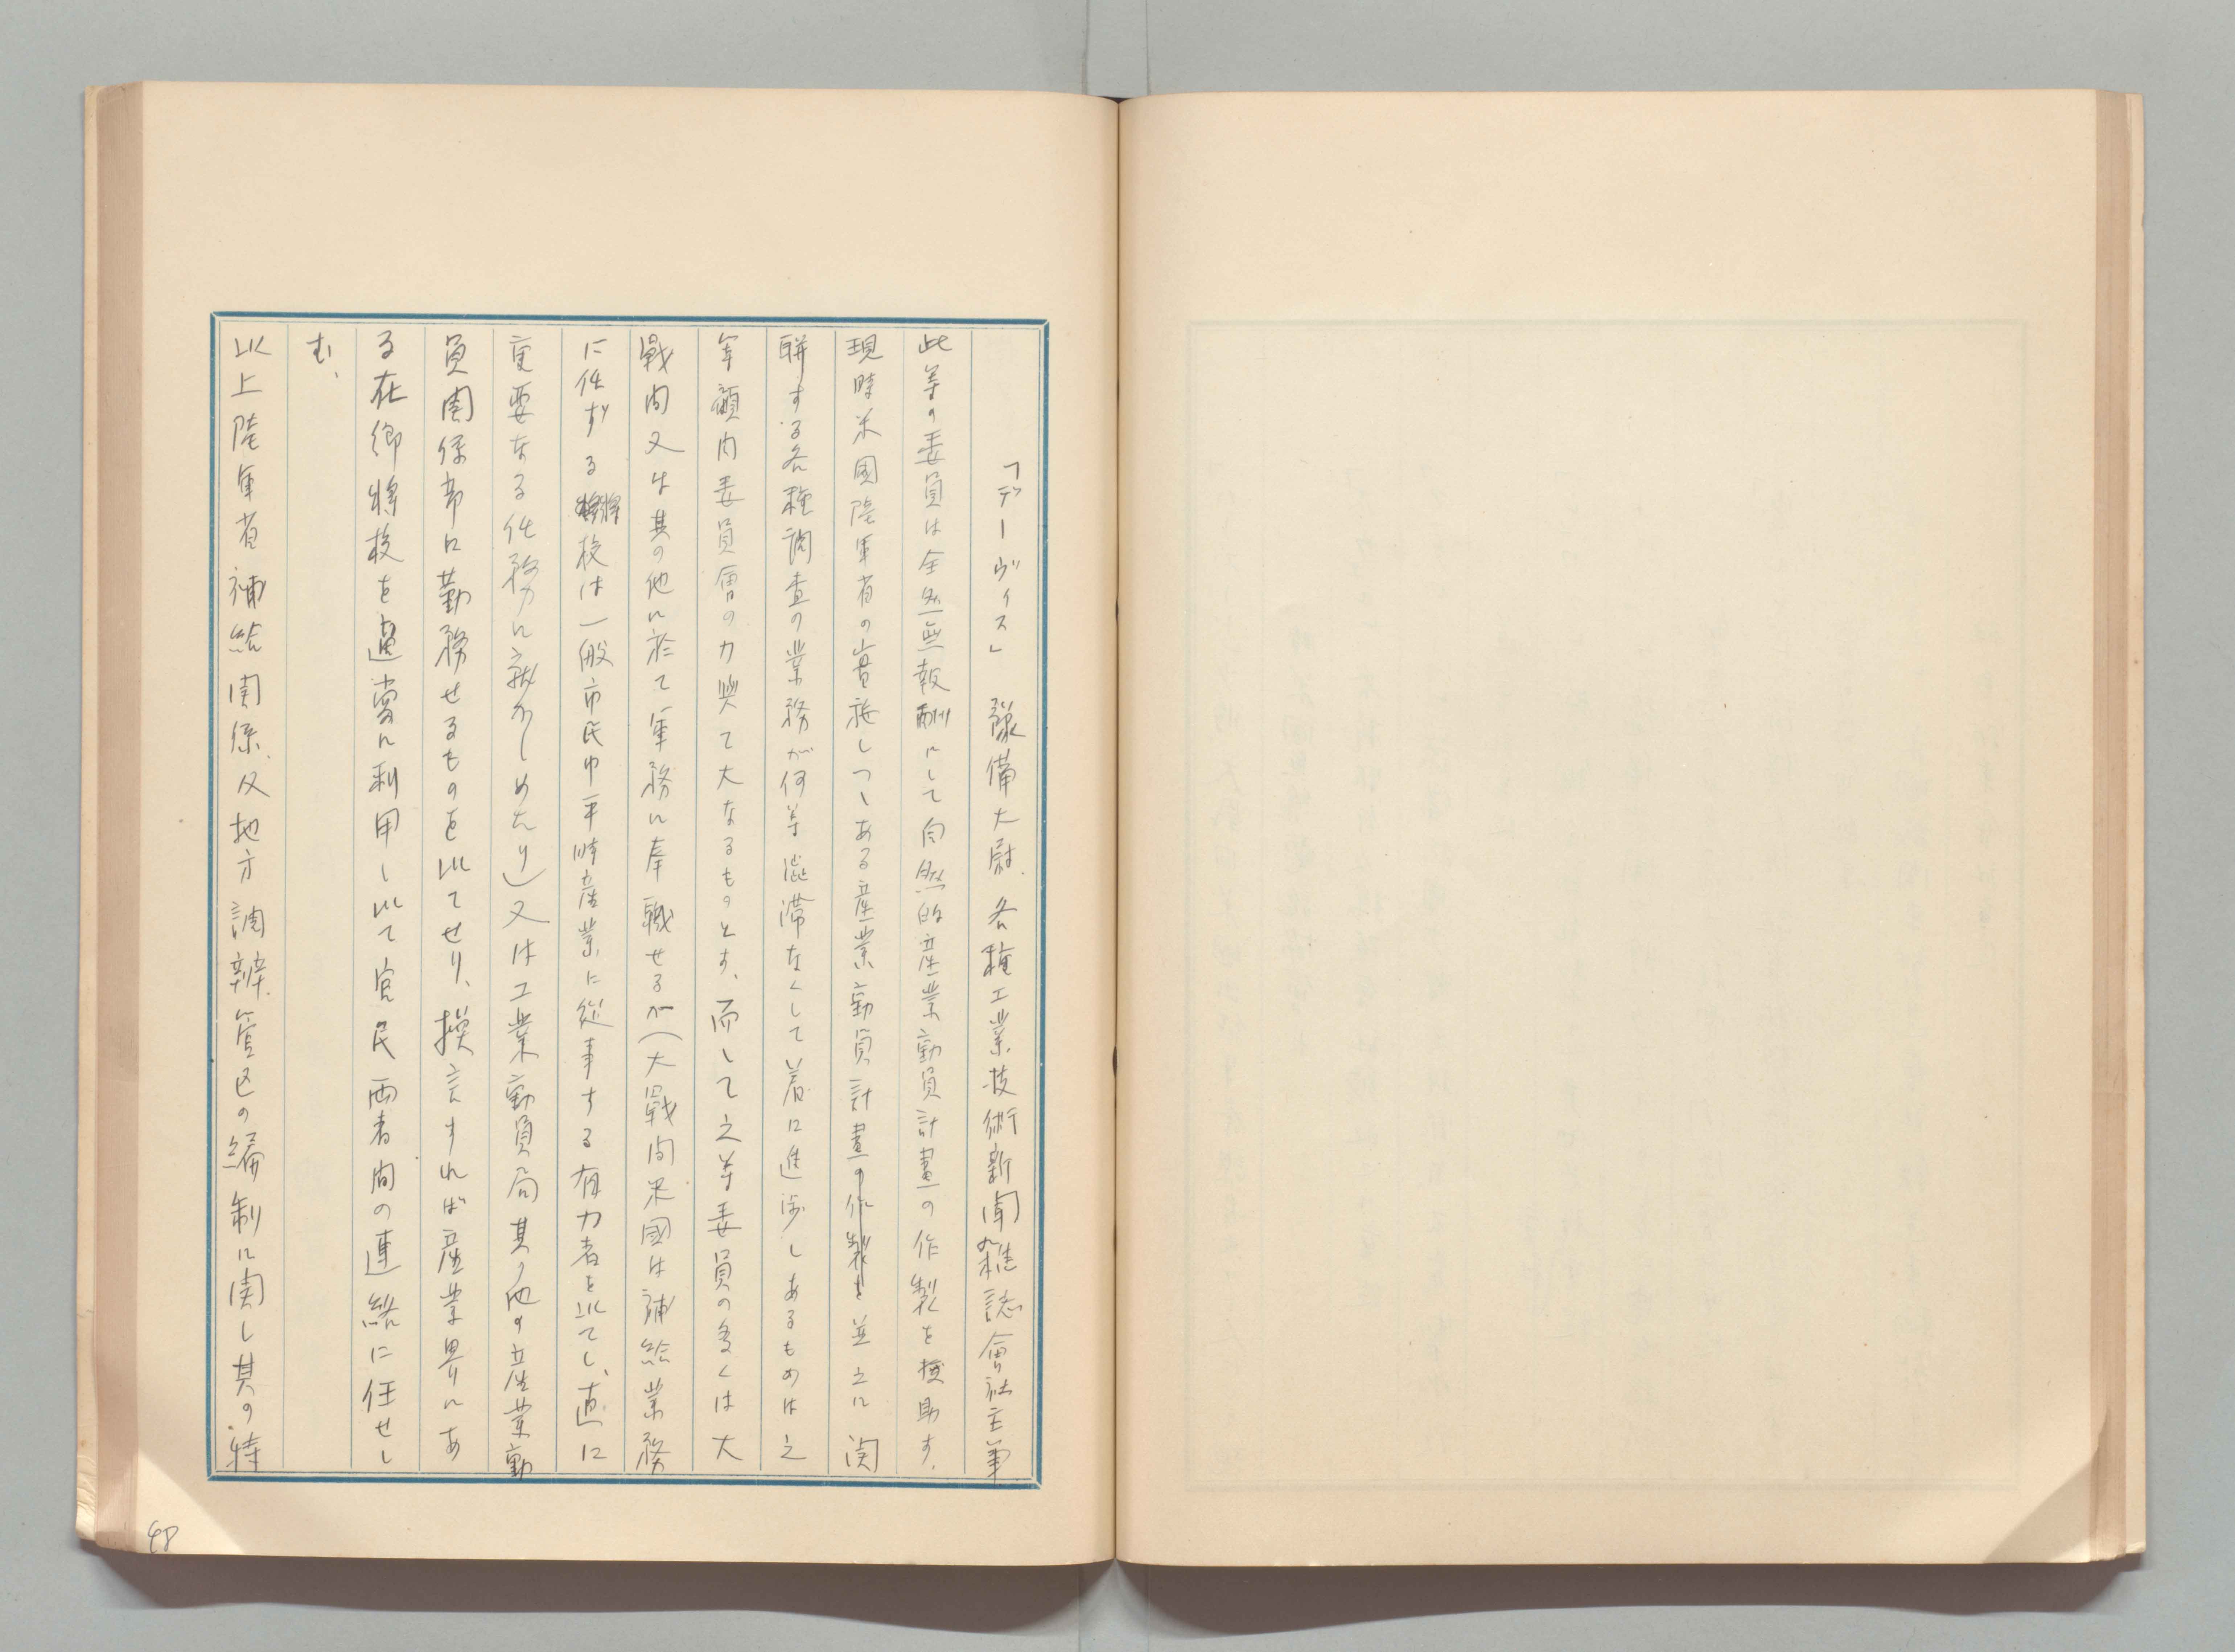 「デーヴィス」 豫備大尉、各種工業技術新聞雑誌會社主筆
此等の委員は全然無報酬にして自然的産業動員計畫の作製を援助す、
現時米國陸軍省の實施しつゝある産業動員計畫の作製を並之に関
聯する各種調査の業務が何等澁滞なくして着に進渉しあるものは之
等顧問委員會の力與て大なるものとす、而して之等委員の多くは大
戰間又は其の他に於て軍務に奉職せるが(大戰間米國は補給業務
に任ずる將校は一般市民中平時産業に従事する有力者を以てし、直に
重要なる任務に就かしめたり)又は工業動員局其の他の産業動
員関係部に勤務せるものを以てせり、換言すれば産業界にあ
る在郷将校を適當に利用し以て官民両者間の連絡に任せし
む、
以上陸軍省補給関係及地方調辨管区の編制に関し其の特
48